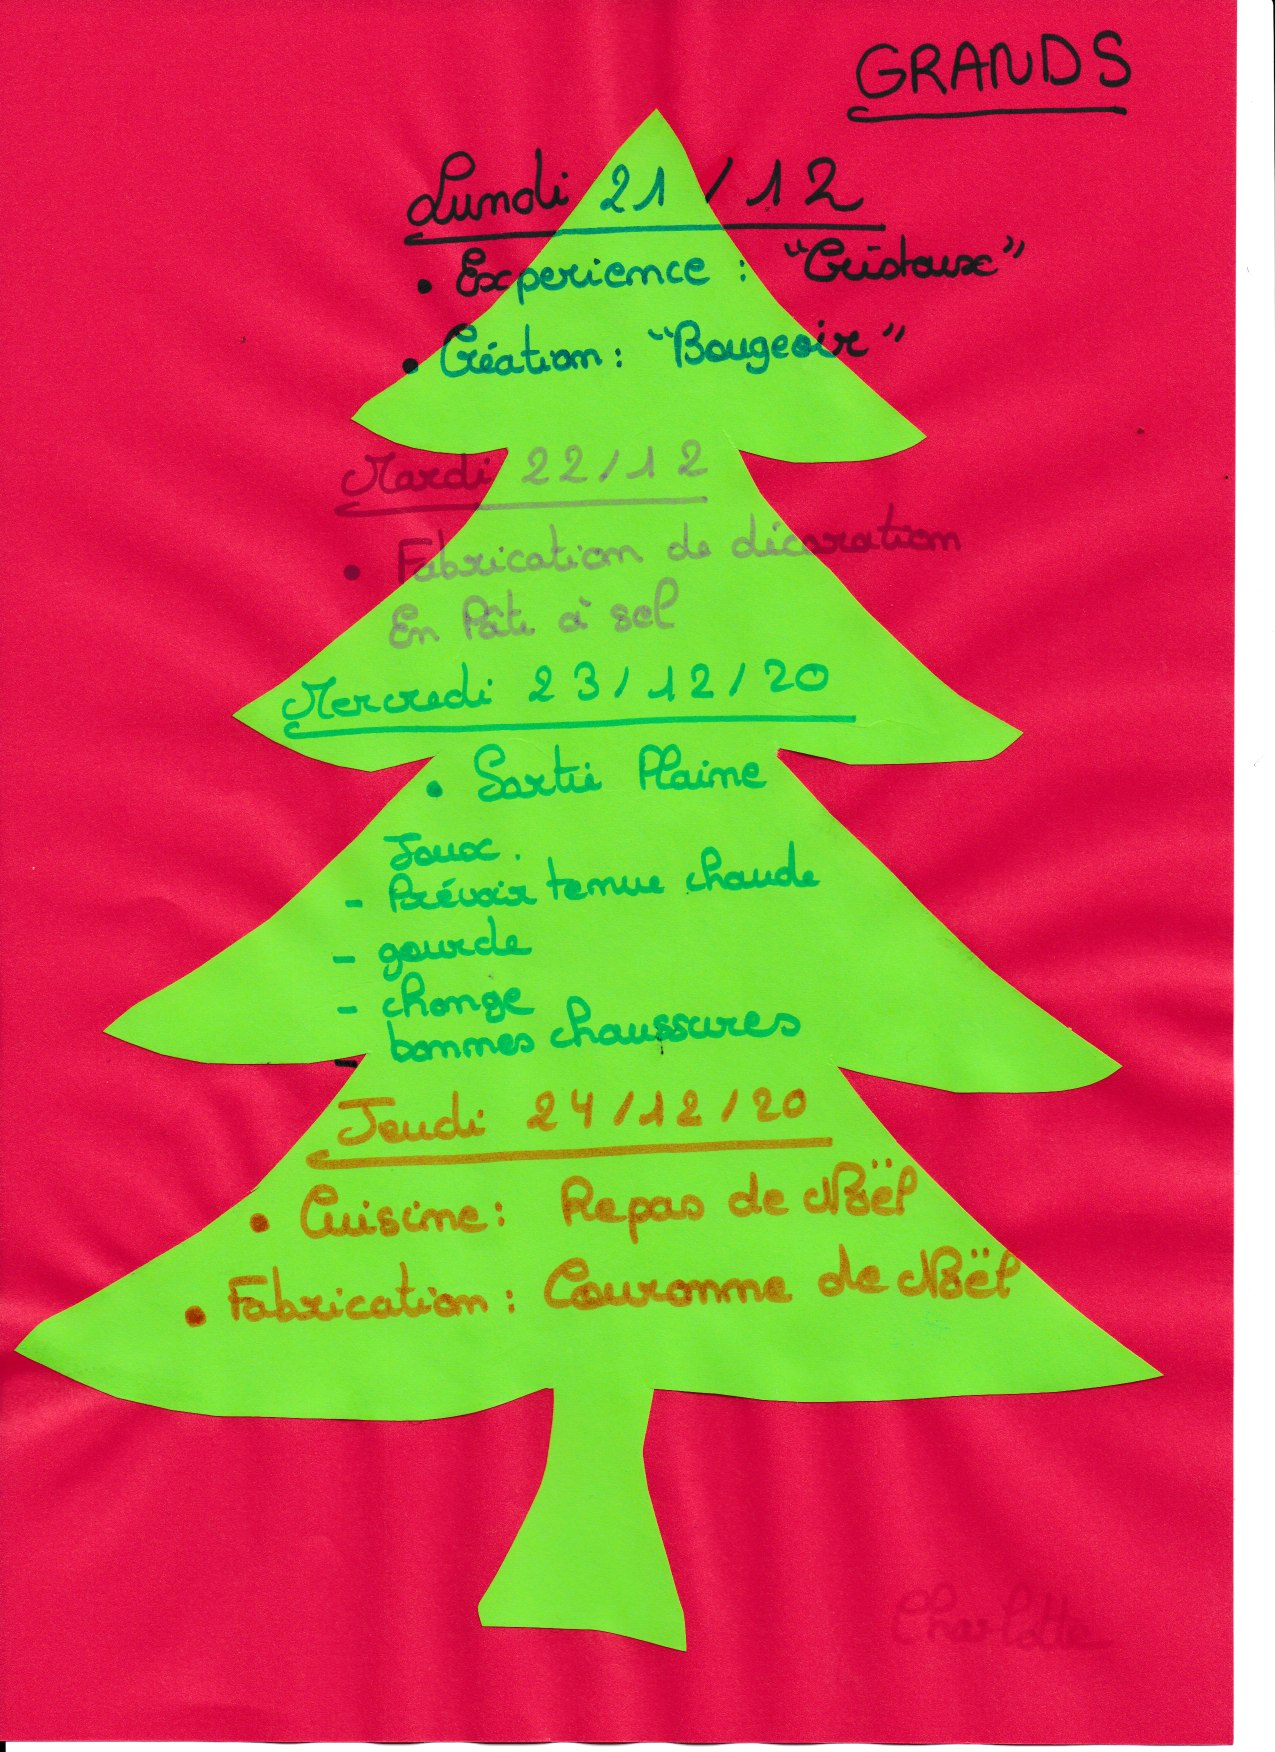 GRANDS
Lundi 21/12
• Experience : "Cristaux"
• Création : "Bougeoir"
Mardi 22/12
• Fabrication de décoration
En Pâte à sel
Mercredi 23/12/20
• Sortie Plaine
Jaux.
- Prévoir tenue chaude
- gourde
- change
- bonnes chaussures
Jeudi 24/12/20
• Cuisine : Repas de Noël
• Fabrication : Couronne de Noël
Charlotte